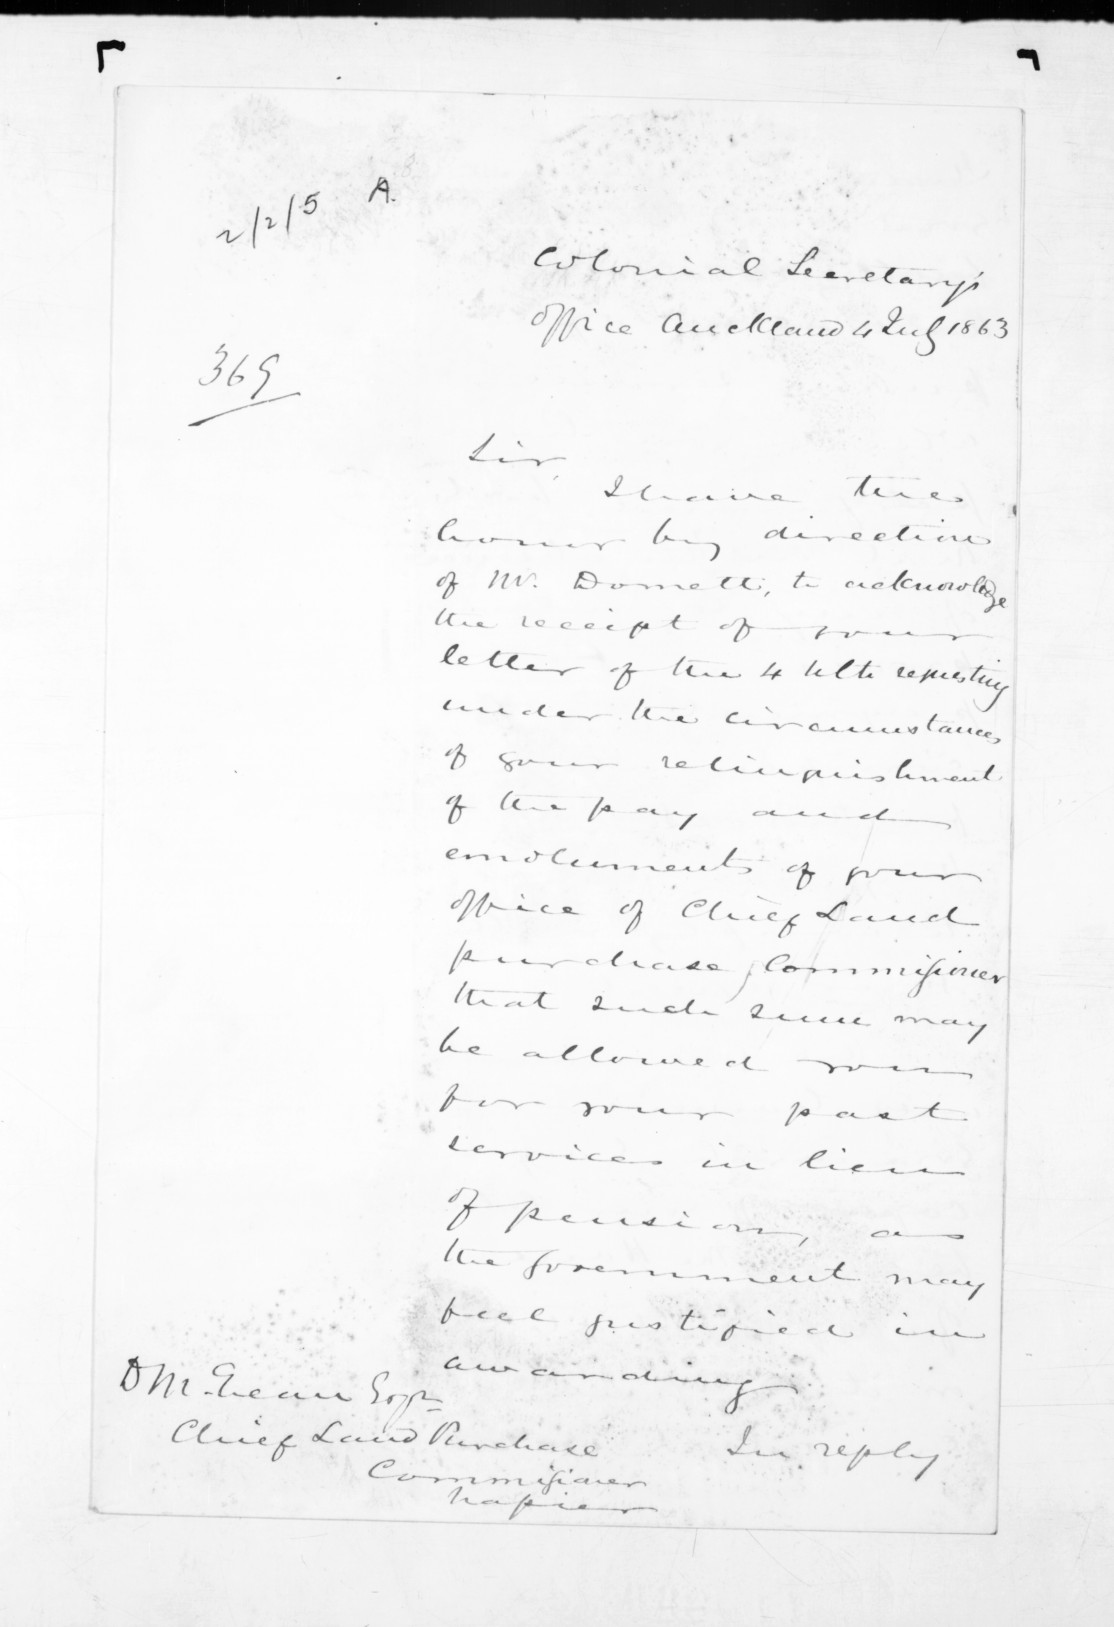 2/2/5 A.
Colonial Secretary's
Office Auckland 4 July 1863
369
Sir,
I have the
honour by direction
of Mr. Domett, to acknowledge
the receipt of your
letter of the 4 Ulto requesting
under the circumstances
of your relinquishment
of the pay and
emoluments of your
office of Chief Land
purchase Commissioner
that such sum may
be allowed you
for your past
services in lieu
of pension, as
the Government may
feel justified in
awarding
In reply
D McLean Esqre
Chief Land Purchase
Commissioner
Napier